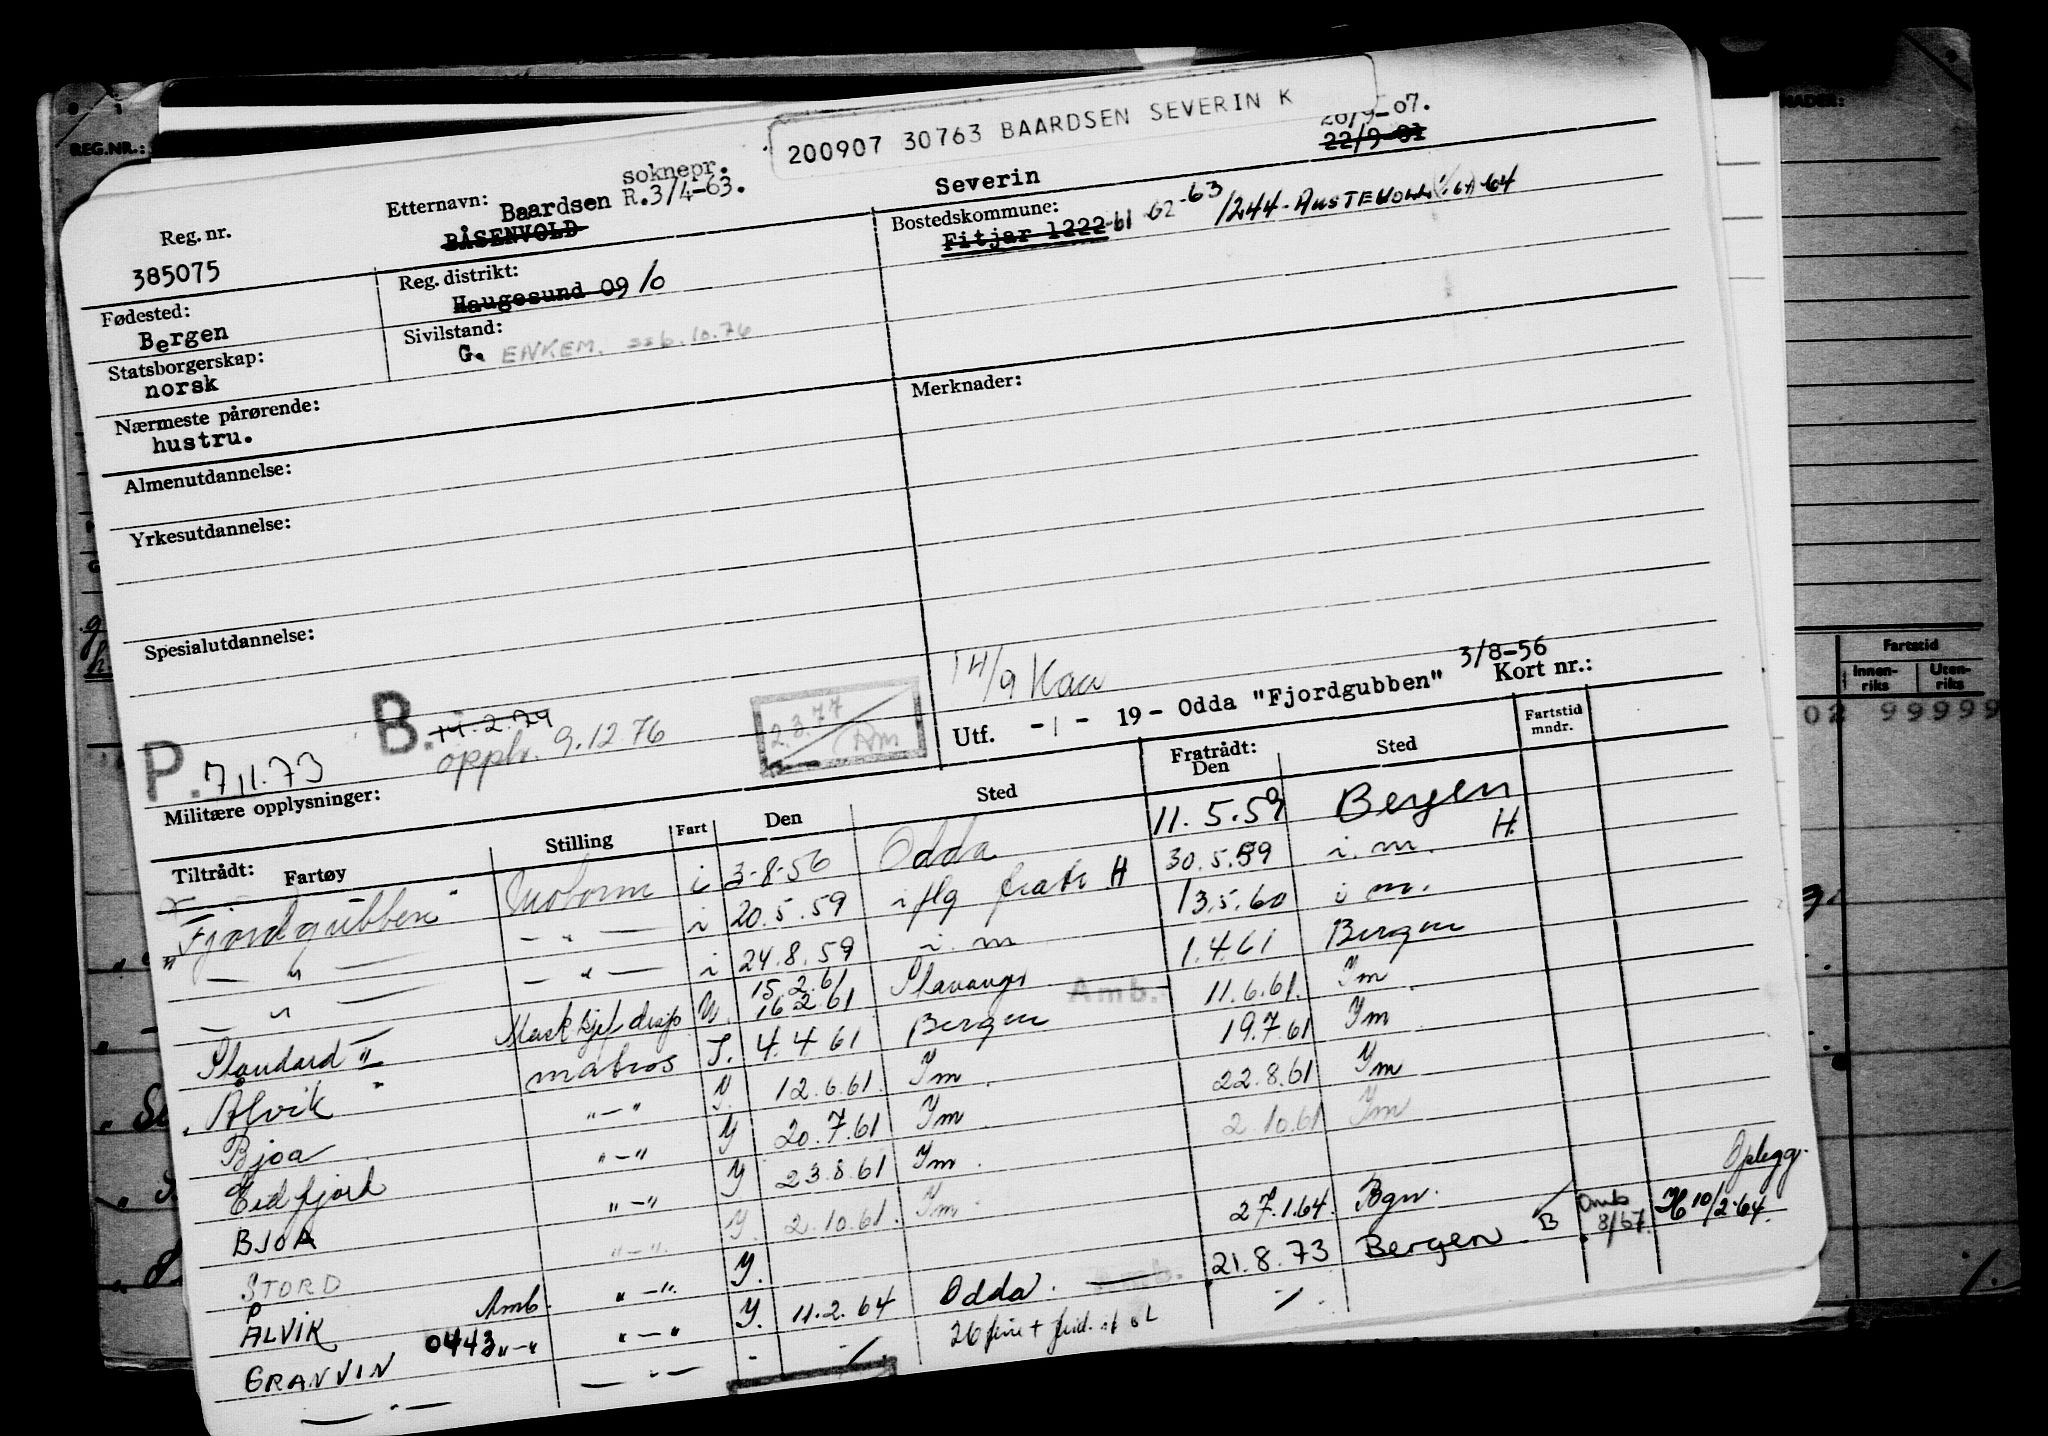 REG.NR.:
200907 30763 BAARDSEN SEVERIN K
20/9-07.
22/9-01
Reg. nr.
385075
Etternavn: Baardsen
soknepr.
R.3/4-63.
BÅSENVOLD
Severin
Bostedskommune:
Fitjar 1222-61 62-63/1244-AUSTEVOLL 64
Fødested:
Bergen
Reg. distrikt:
Haugesund 09 10
Statsborgerskap:
norsk
Sivilstand:
G. ENKEM. ssb.10.76
Nærmeste pårørende:
hustru.
Merknader:
Almenutdannelse:
Yrkesutdannelse:
Spesialutdannelse:
14/9 Kaa
P. 7.11.73
B. 14.2.74
oppbr. 9.12.76
2.3.77
Am
Utf. - 1 - 19 - Odda "Fjordgubben" 3/8-56
Kort nr.:
Militære opplysninger:
Tiltrådt: Fartøy
Stilling
Fart
Den
Sted
Fratrådt:
Den
Sted
Fartstid
mndr.
"Fjordgubben" Motorm i 3-8-56 Odda 11.5.59 Bergen
— " — — " — i 20.5.59 i flg fratr H 30.5.59 i.m. H.
— " — — " — i 24.8.59 i.m 13.5.60 i m.
15 2.61
Standard " U. 16 2 61 Stavanger 1.4.61 Bergen
Ålvik matros I. 4.4 61 Bergen Amb. 11.6.61. Ym
Bjoa " — " Y. 12.6.61. Ym 19.7.61 Ym
Eidfjord " — " Y 20.7.61 Ym 22.8.61 Ym
BJOA " — " Y 23.8.61 Ym 2.10.61 Ym
STORD " — " Y. 2.10.61. Ym
ÅLVIK Amb. " — " Y. 27.1.64. Bgn. Opplegg.
GRANVIN 0443 " — " " — " Y. 11.2.64 Odda. — Amb. 21.8.73 Bergen B Amb 8/67. H 10/2-64.
— " — — " — - 26 -/-
Fartstid
Innen-
riks
Uten-
riks
02 99999